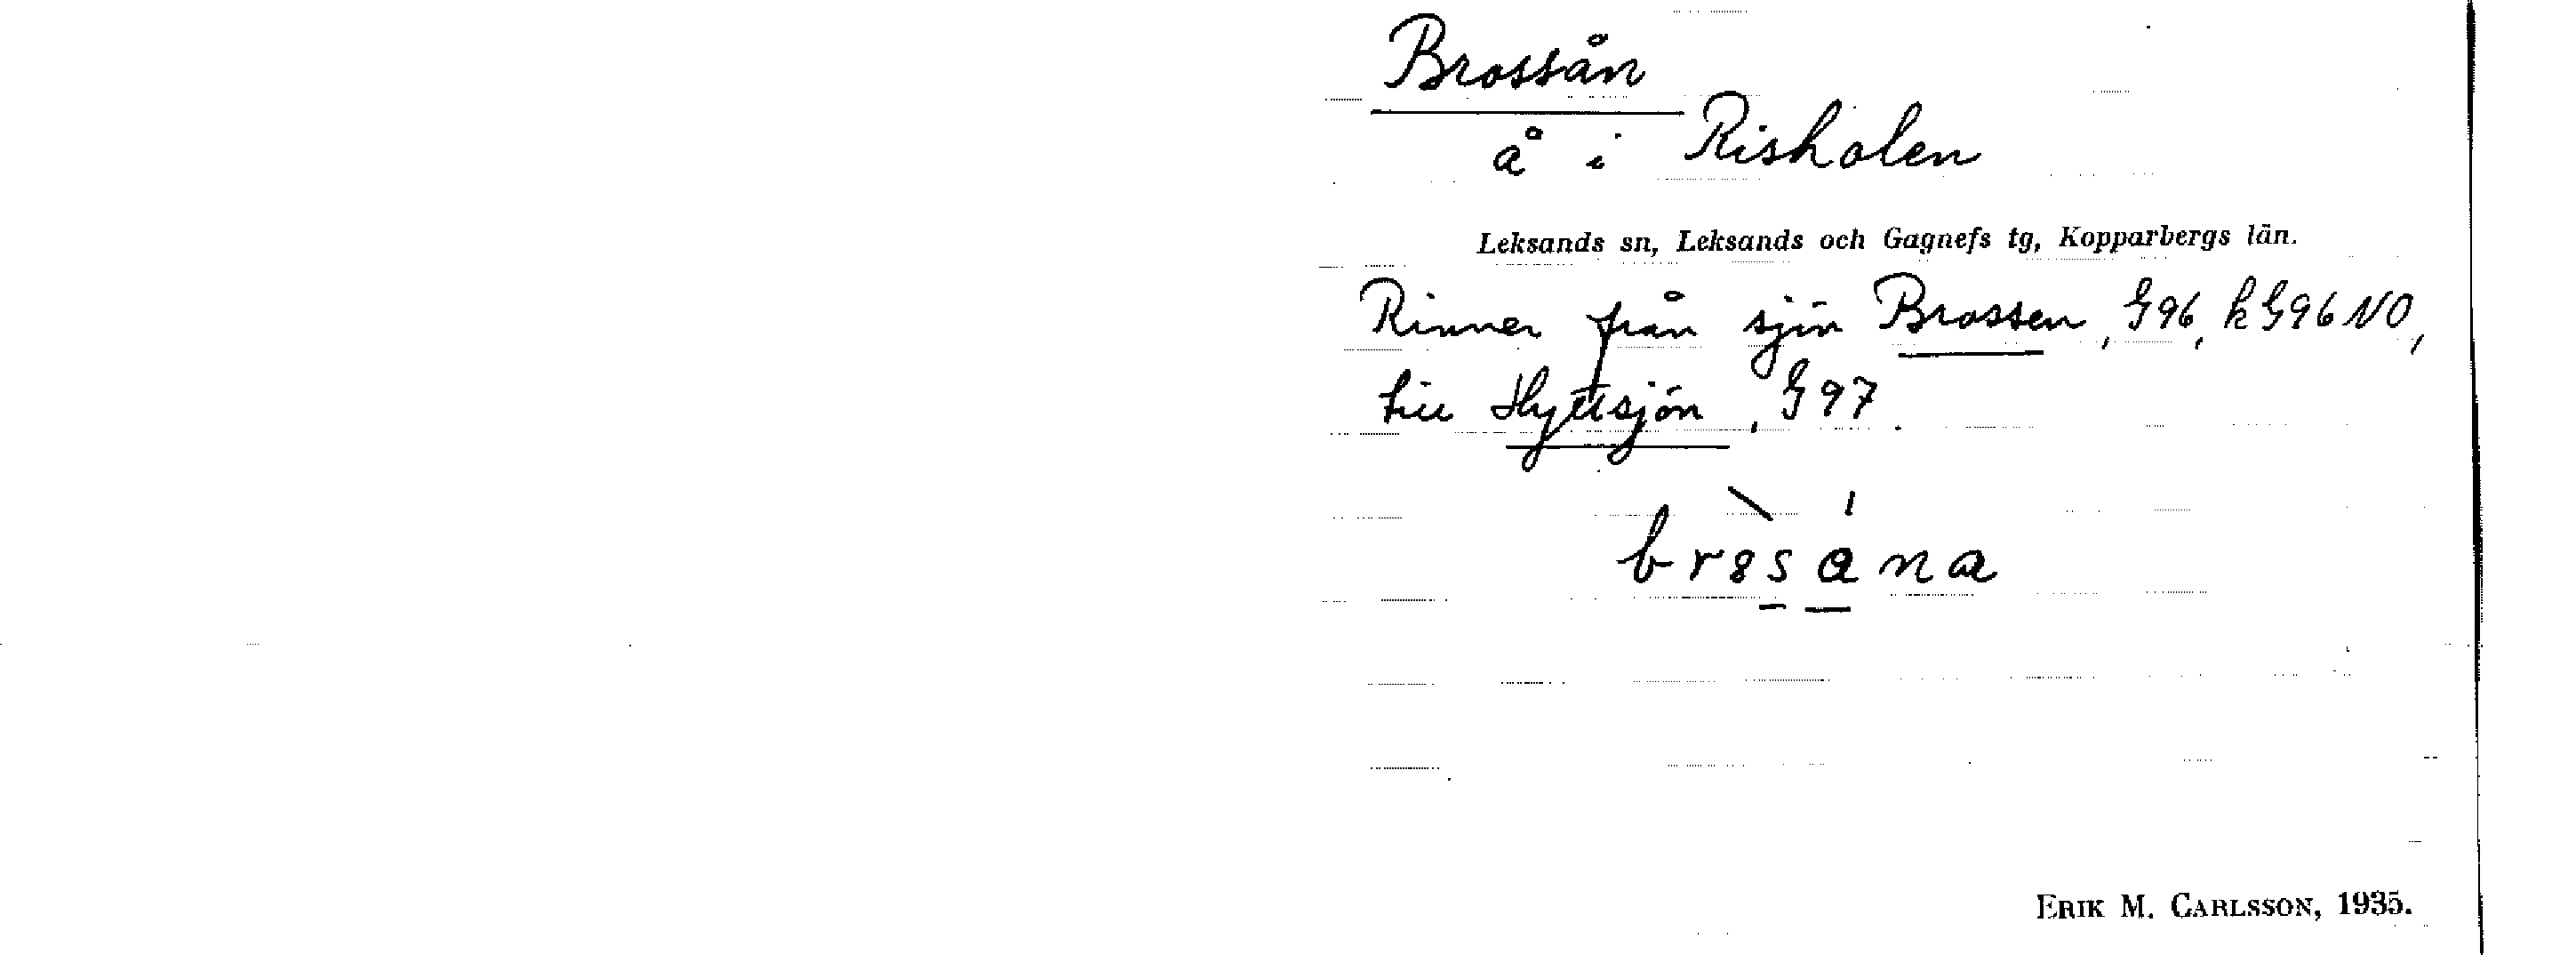 Brossån
å i Risholen
Leksands sn, Leksands och Gagnefs tg, Kopparbergs län.
Rinner från sjön Brossen, G96, k G96 NO,
till Hyttsjön, G97.
ERIK M. CARLSSON, 1935.